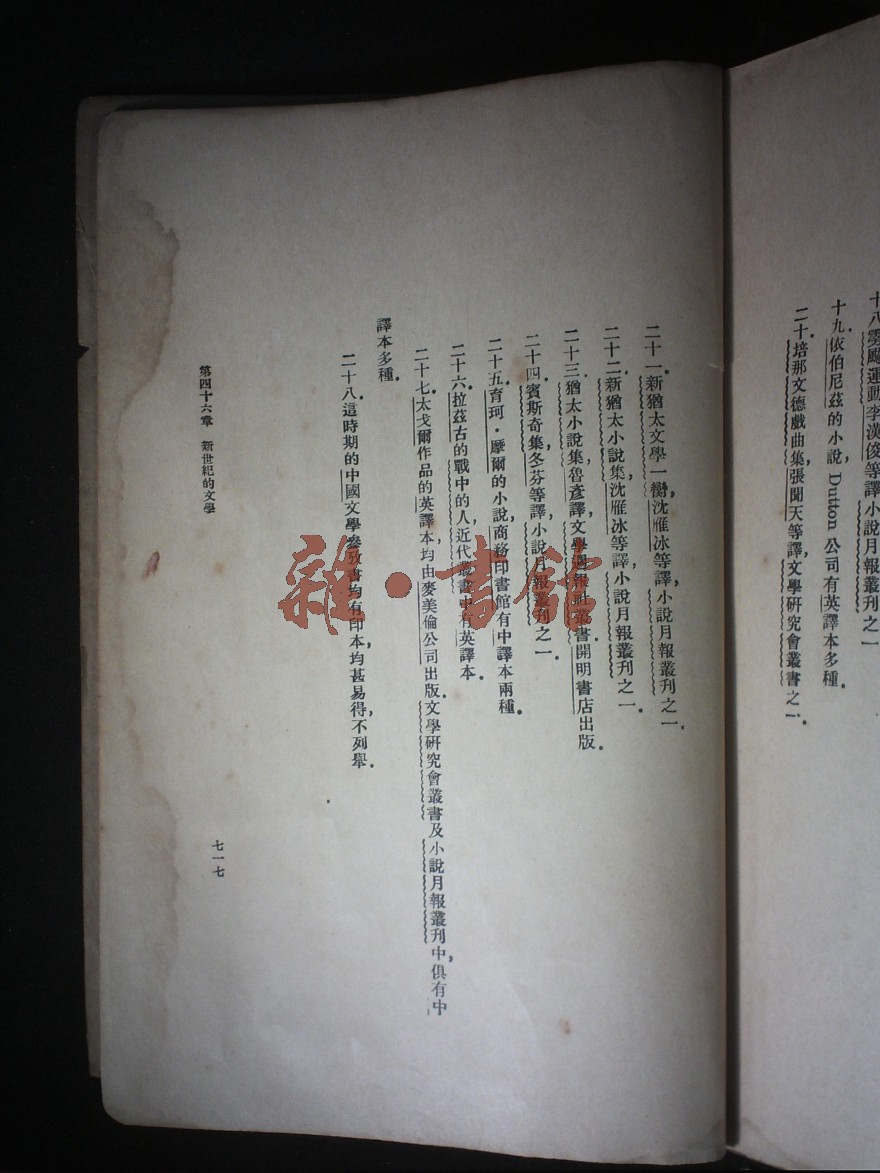 十八.勞動運動李漢俊等譯,小說月報叢刊之一
十九.依伯尼茲的小說,Dutton 公司有英譯本多種.
二十.培那文德戲曲集,張聞天等譯,文學研究會叢書之一.
二十一.新猶太文學一臠,沈雁冰等譯,小說月報叢刊之一.
二十二.新猶太小說集,沈雁冰等譯,小說月報叢刊之一.
二十三.猶太小說集,魯彥譯,文學週報社叢書.開明書店出版.
二十四.賓斯奇集,冬芬等譯,小說月報叢刊之一.
二十五.育珂·摩爾的小說,商務印書館有中譯本兩種.
二十六.拉茲古的戰中的人,近代叢書中有英譯本.
二十七.太戈爾作品的英譯本,均由麥美倫公司出版.文學研究會叢書及小說月報叢刊中,俱有中
譯本多種.
二十八.這時期的中國文學參攷書均有印本,均甚易得,不列舉.
第四十六章 新世紀的文學
七一七
雜·書館